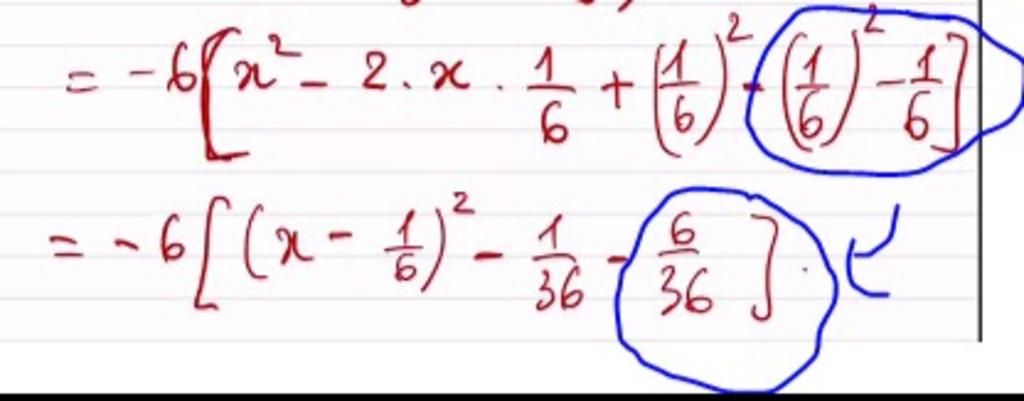 = -6[x² - 2.x.1/6 + (1/6)² - (1/6)² - 1/6]
= -6[(x - 1/6)² - 1/36 - 6/36].